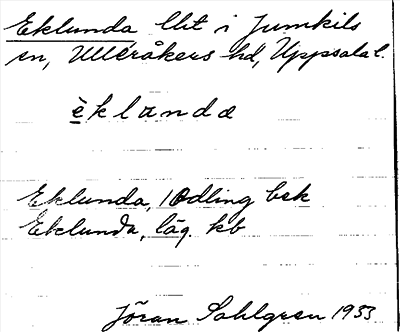 Eklunda lht i Jumkils
sn, Ulleråkers hd, Uppsala l.
èklanda
Eklunda, 1 Odling bek
Eklunda, läg. kb
Jöran Sahlgren 1933